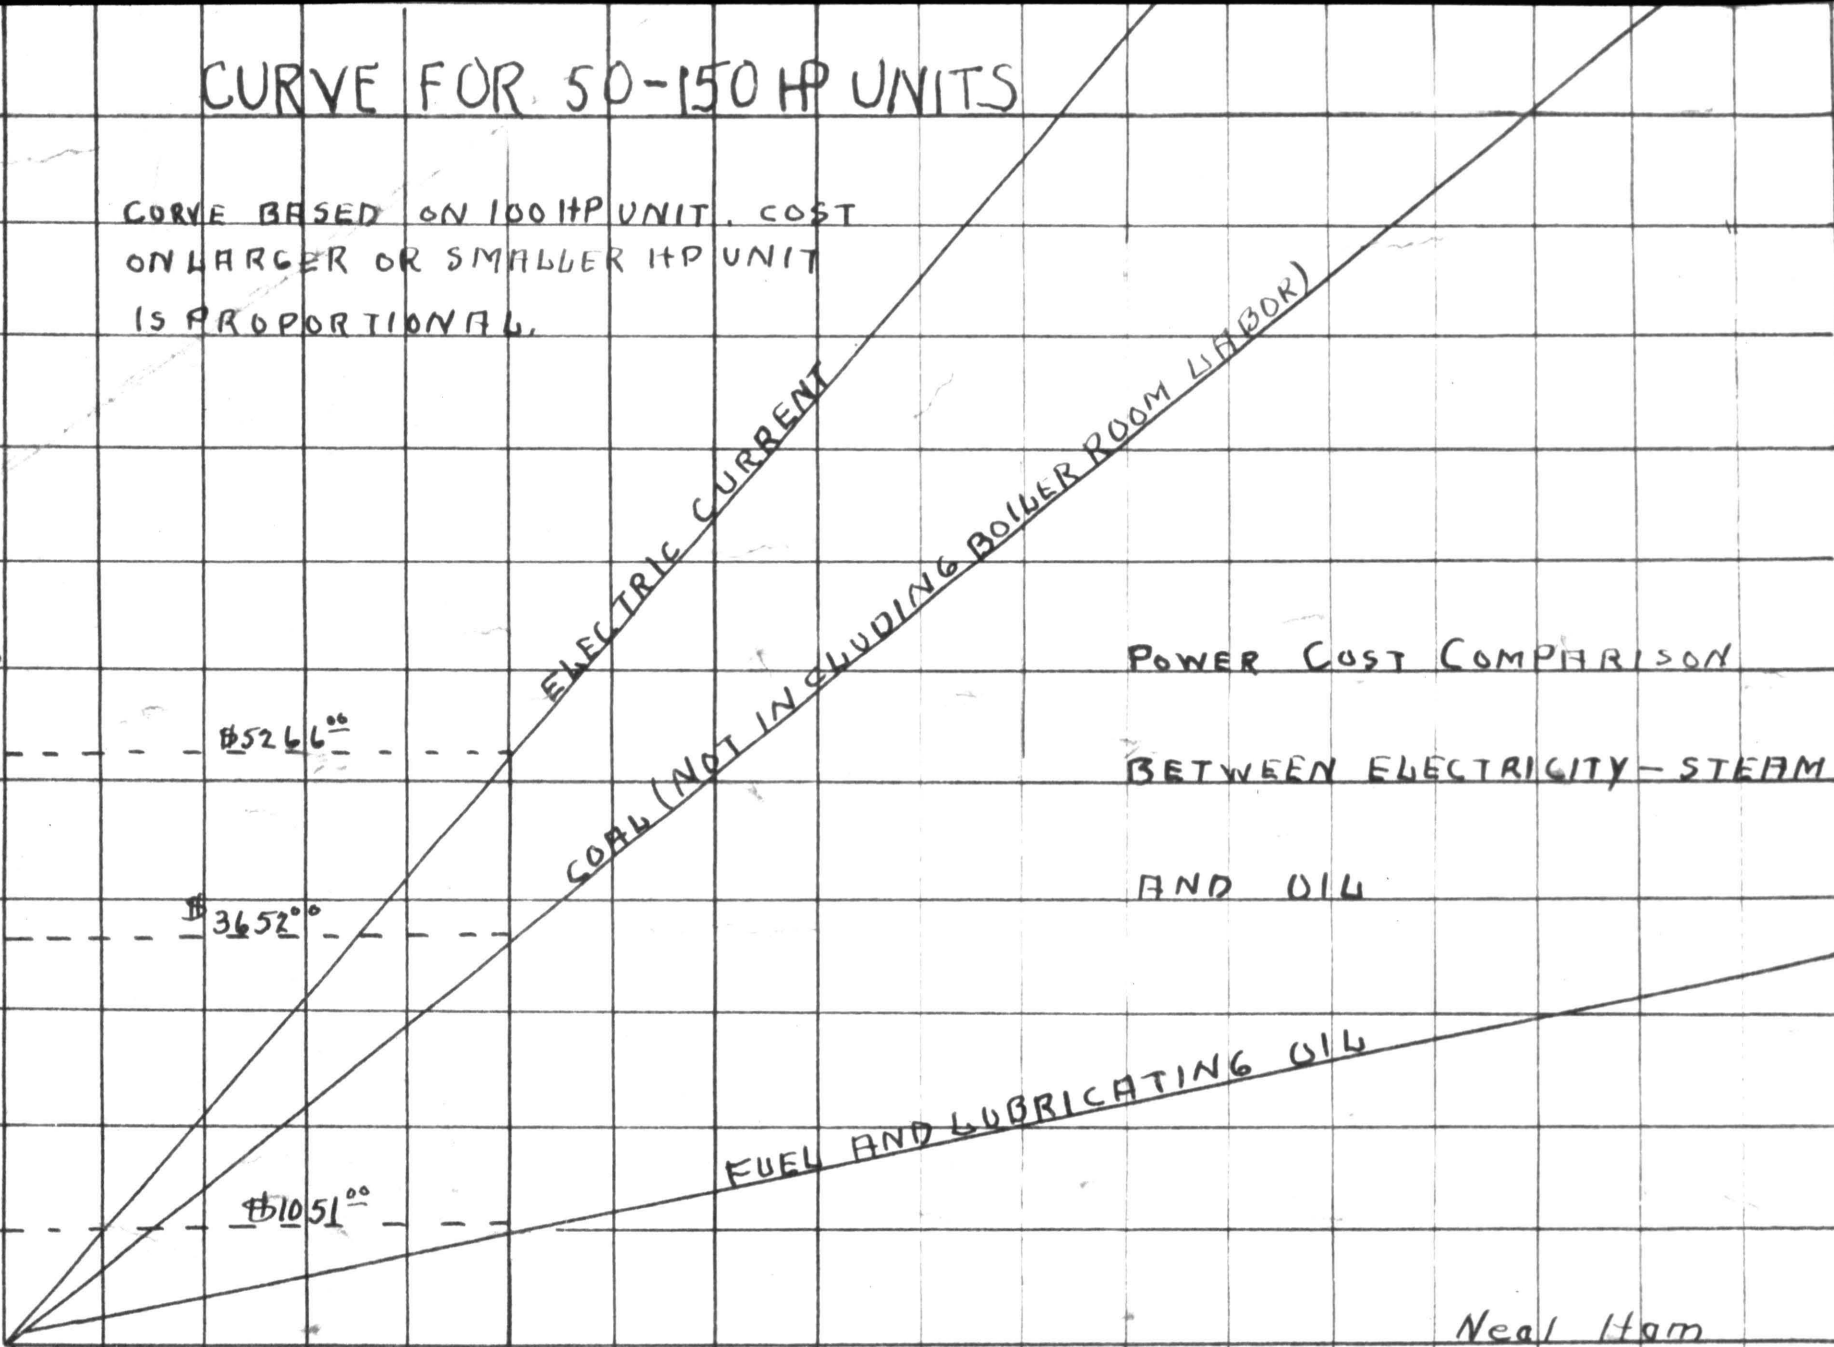 CURVE FOR 50-150 HP UNITS
CORVE BASED ON 100 HP UNIT. COST
ON LARGER OR SMALLER HP UNIT
IS PROPORTIONAL.
ELECTRIC CURRENT
COAL (NOT INCLUDING BOILER ROOM LABOR)
POWER COST COMPARISON
$5266.00
BETWEEN ELECTRICITY - STEAM
AND OIL
$3652.00
FUEL AND LUBRICATING OIL
$1051.00
Neal Ham